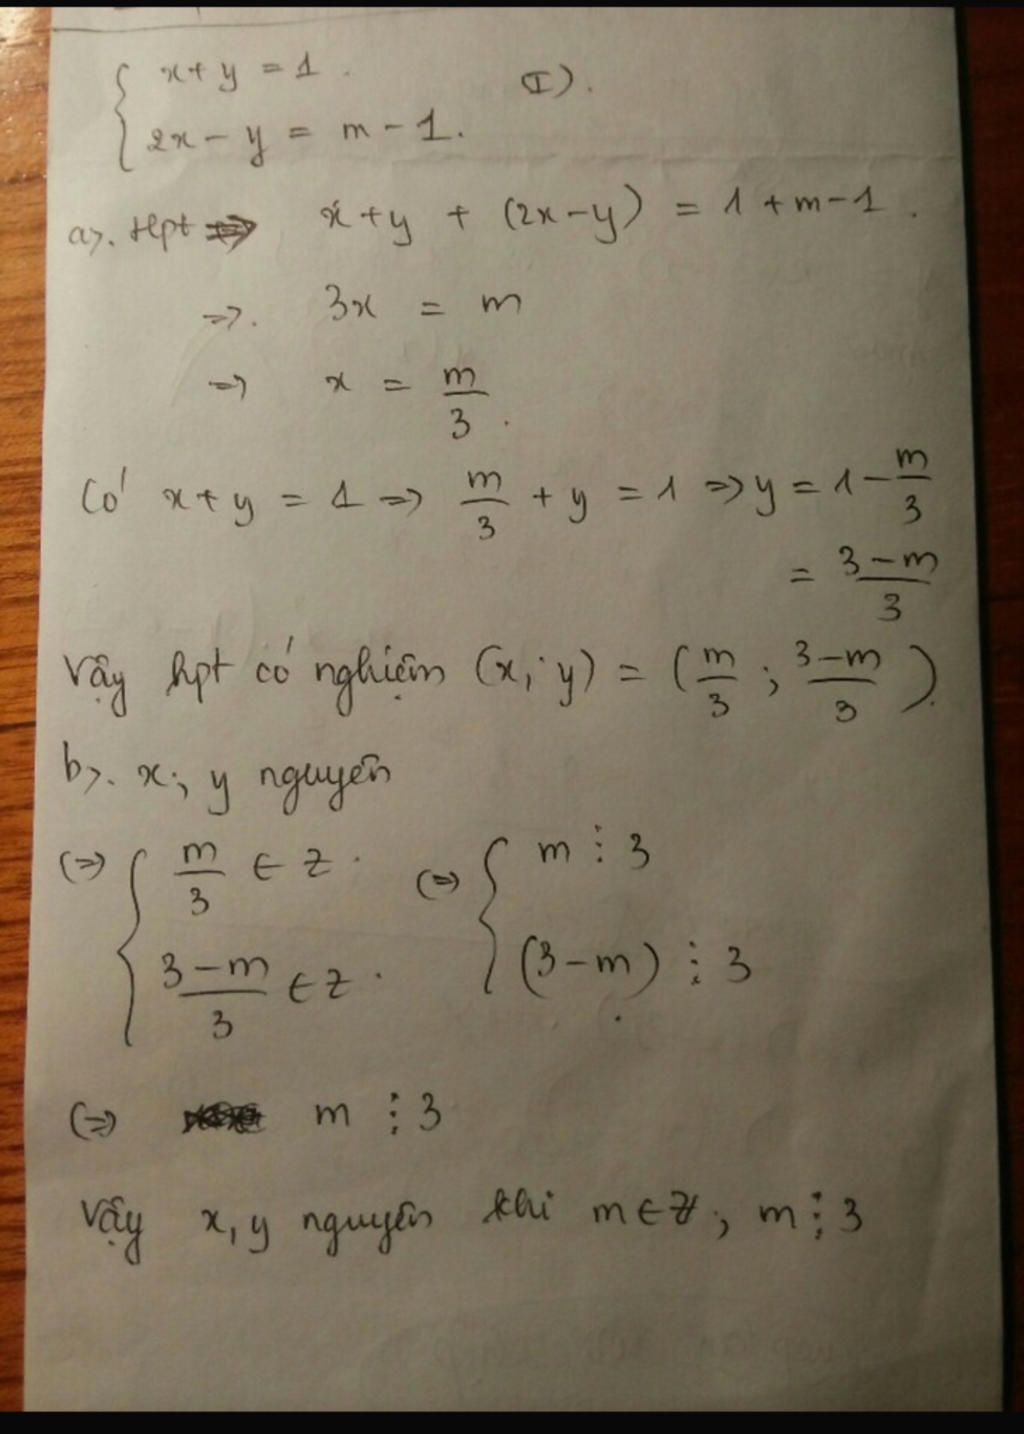 { x + y = 1. (I).
{ 2x - y = m - 1.
a>. Hpt => x + y + (2x - y) = 1 + m - 1.
=>. 3x = m
=> x = m/3.
Có x + y = 1 => m/3 + y = 1 => y = 1 - m/3
= (3 - m)/3
Vậy hpt có nghiệm (x; y) = (m/3 ; (3 - m)/3).
b>. x; y nguyên
(=> { m/3 ∈ Z. (=> { m ⋮ 3
{ (3 - m)/3 ∈ Z. { (3 - m) ⋮ 3
(=> m ⋮ 3
Vậy x, y nguyên khi m ∈ Z; m ⋮ 3